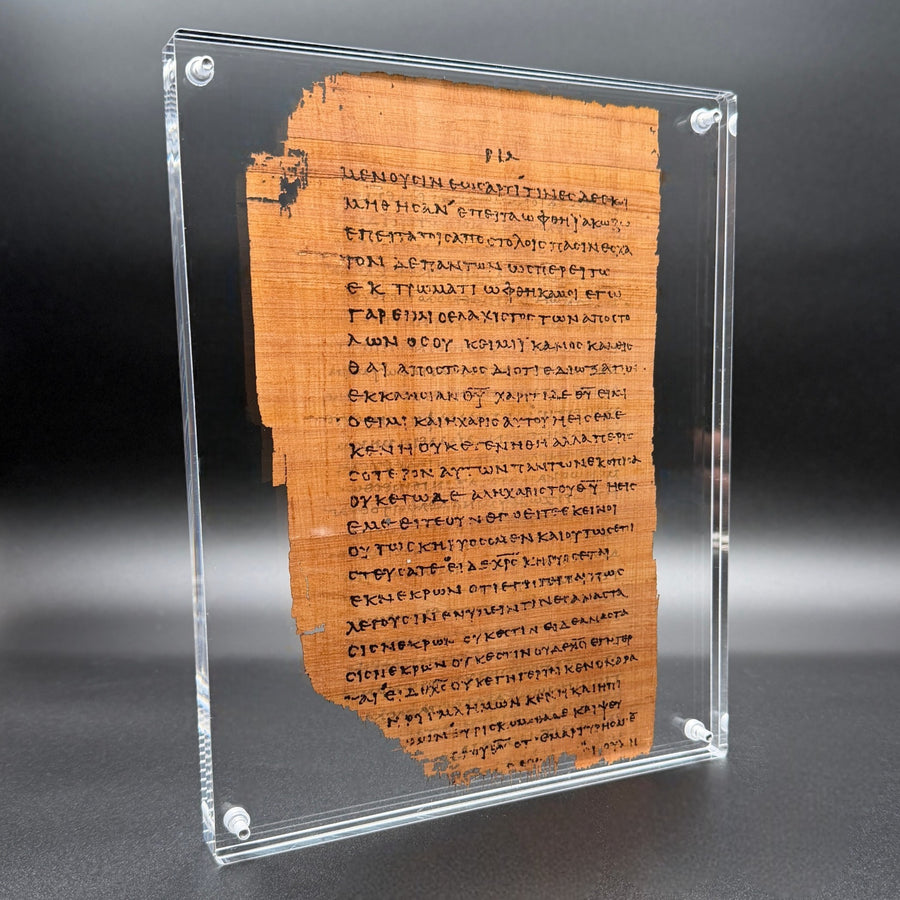 ΜΕΝΟΥCΙΝ ΕΩC ΑΡΤΙ ΤΙΝΕC ΔΕ ΕΚΟΙ
ΜΗΘΗCΑΝ ΕΠΕΙΤΑ ΩΦΘΗ ΙΑΚΩΒΩ
ΕΠΕΙΤΑ ΤΟΙC ΑΠΟCΤΟΛΟΙC ΠΑCΙΝ ΕCΧΑ
ΤΟΝ ΔΕ ΠΑΝΤΩΝ ΩCΠΕΡΕΙ ΤΩ
ΕΚΤΡΩΜΑΤΙ ΩΦΘΗ ΚΑΜΟΙ ΕΓΩ
ΓΑΡ ΕΙΜΙ Ο ΕΛΑΧΙCΤΟC ΤΩΝ ΑΠΟCΤΟ
ΛΩΝ ΟC ΟΥΚ ΕΙΜΙ ΙΚΑΝΟC ΚΑΛΕΙC
ΘΑΙ ΑΠΟCΤΟΛΟC ΔΙΟΤΙ ΕΔΙΩΞΑ ΤΗΝ
ΕΚΚΛΗCΙΑΝ Θ̅Υ̅ ΧΑΡΙΤΙ ΔΕ Θ̅Υ̅ ΕΙΜΙ
Ο ΕΙΜΙ ΚΑΙ Η ΧΑΡΙC ΑΥΤΟΥ Η ΕΙC ΕΜΕ
ΚΕΝΗ ΟΥΚ ΕΓΕΝΗΘΗ ΑΛΛΑ ΠΕΡΙC
CΟΤΕΡΟΝ ΑΥΤΩΝ ΠΑΝΤΩΝ ΕΚΟΠΙΑCΑ
ΟΥΚ ΕΓΩ ΔΕ ΑΛΛ Η ΧΑΡΙC ΤΟΥ Θ̅Υ̅ Η ΕΙC
ΕΜΕ ΕΙΤΕ ΟΥΝ ΕΓΩ ΕΙΤΕ ΕΚΕΙΝΟΙ
ΟΥΤΩC ΚΗΡΥCCΟΜΕΝ ΚΑΙ ΟΥΤΩC ΕΠΙ
CΤΕΥCΑΤΕ ΕΙ ΔΕ Χ̅Ρ̅C̅ ΚΗΡΥCCΕΤΑΙ
ΕΚ ΝΕΚΡΩΝ ΟΤΙ ΕΓΗΓΕΡΤΑΙ ΠΩC
ΛΕΓΟΥCΙΝ ΕΝ ΥΜΕΙΝ ΤΙΝΕC ΑΝΑCΤΑ
CΙC ΝΕΚΡΩΝ ΟΥΚ ΕCΤΙΝ ΕΙ ΔΕ ΑΝΑCΤΑ
CΙC ΝΕΚΡΩΝ ΟΥΚ ΕCΤΙΝ ΟΥΔΕ Χ̅Ρ̅C̅ ΕΓΗΓΕΡ
ΤΑΙ ΕΙ ΔΕ Χ̅Ρ̅C̅ ΟΥΚ ΕΓΗΓΕΡΤΑΙ ΚΕΝΟΝ ΑΡΑ
ΗΜΩΝ ΚΕΝΗ ΚΑΙ Η ΠΙ
ΕΥΡΙCΚΟΜΕΘΑ ΔΕ ΚΑΙ ΨΕΥ